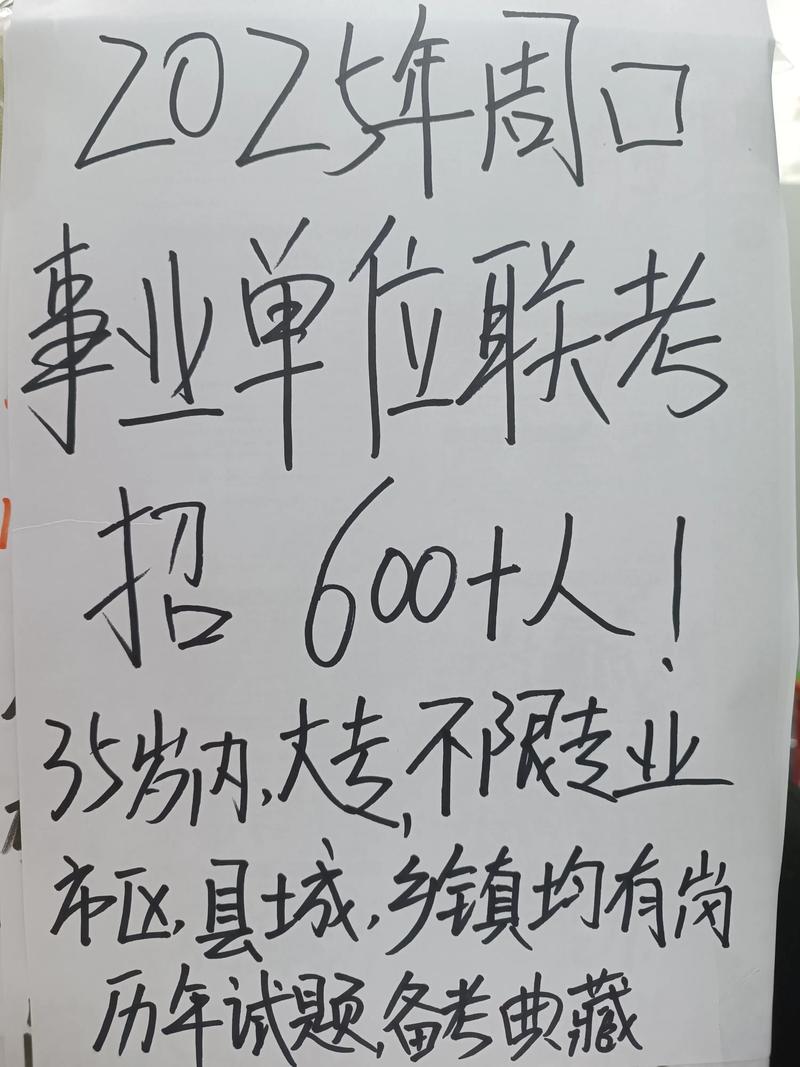 2025年周口
事业单位联考
招 600+人!
35岁内,大专,不限专业
市区,县城,乡镇均有岗
历年试题,备考典藏